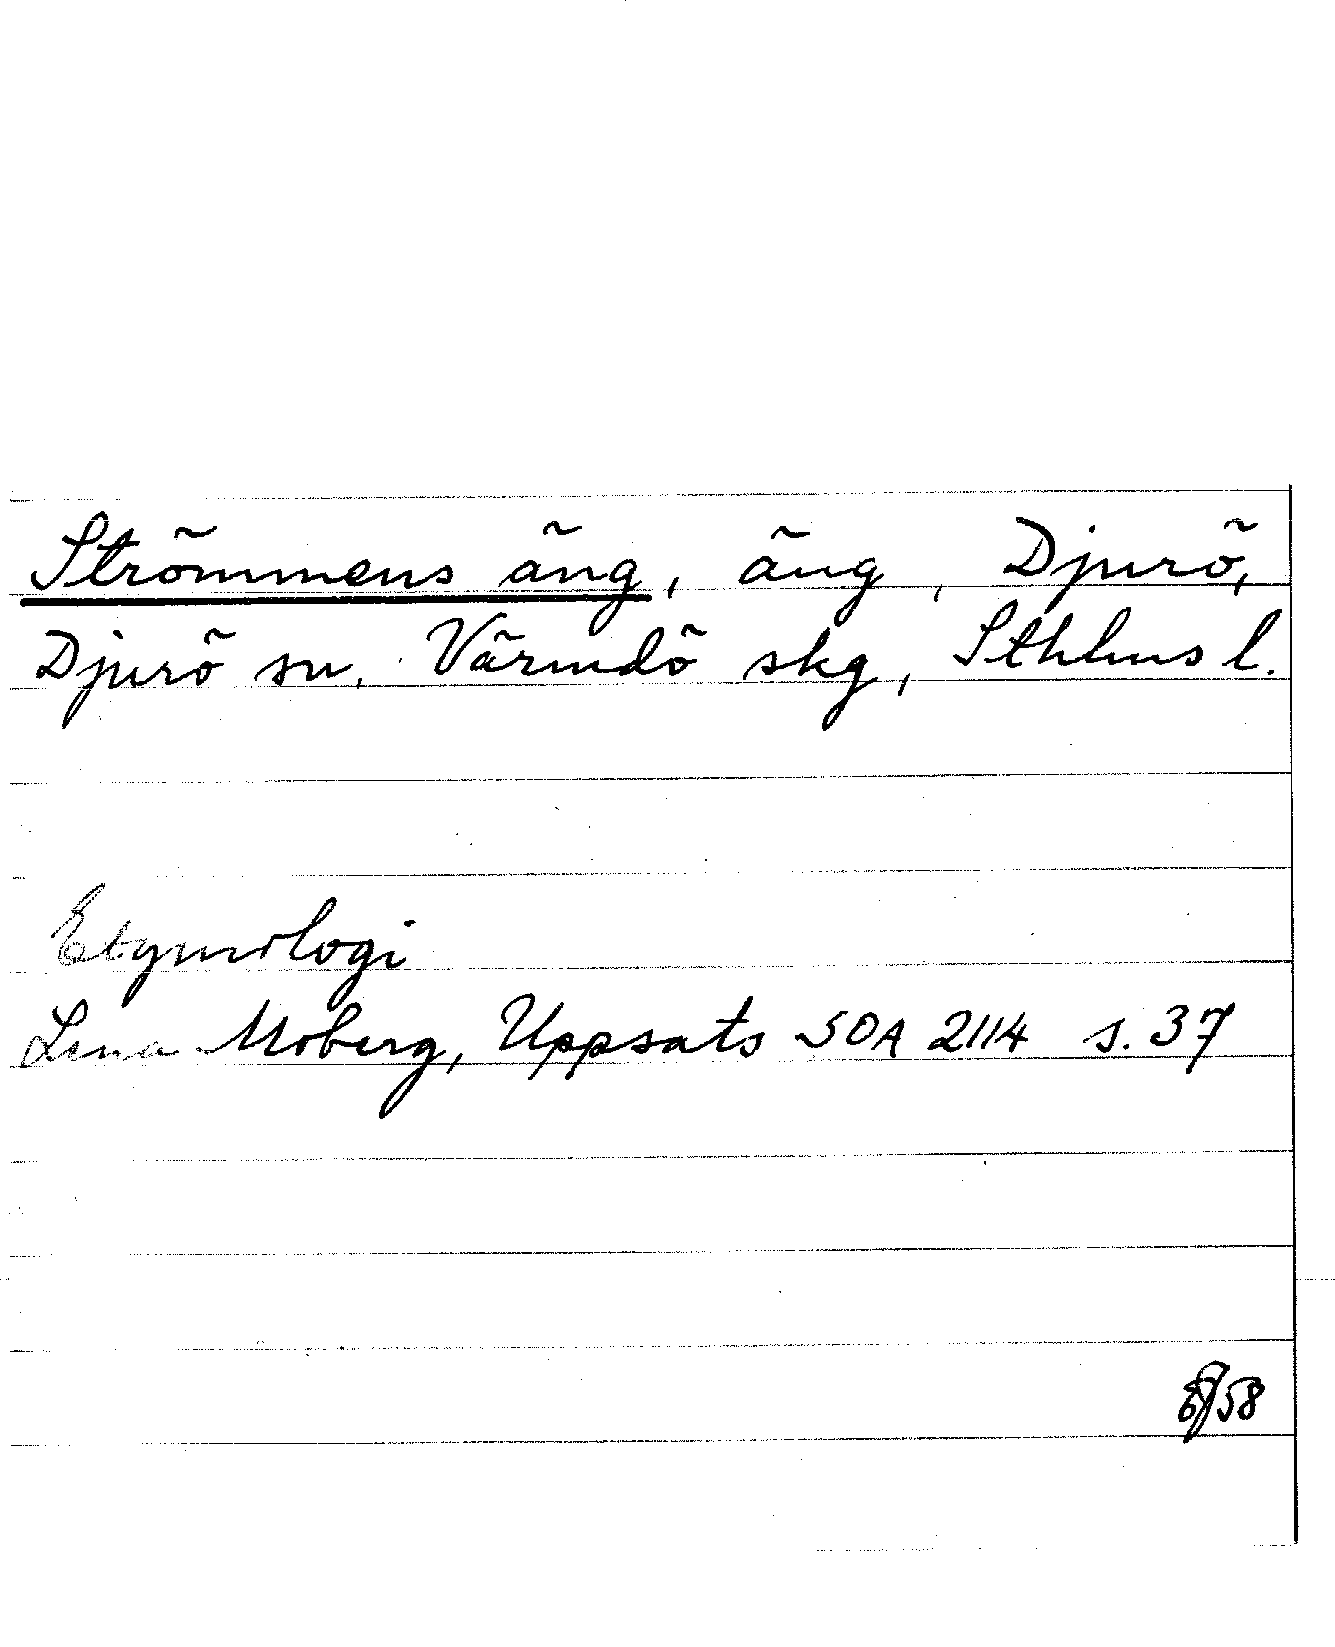 Strömmens äng, äng, Djurö,
Djurö sn, Värmdö skg, Sthlms l.
Etymologi
Lena Moberg, Uppsats SOA 2114 s. 37